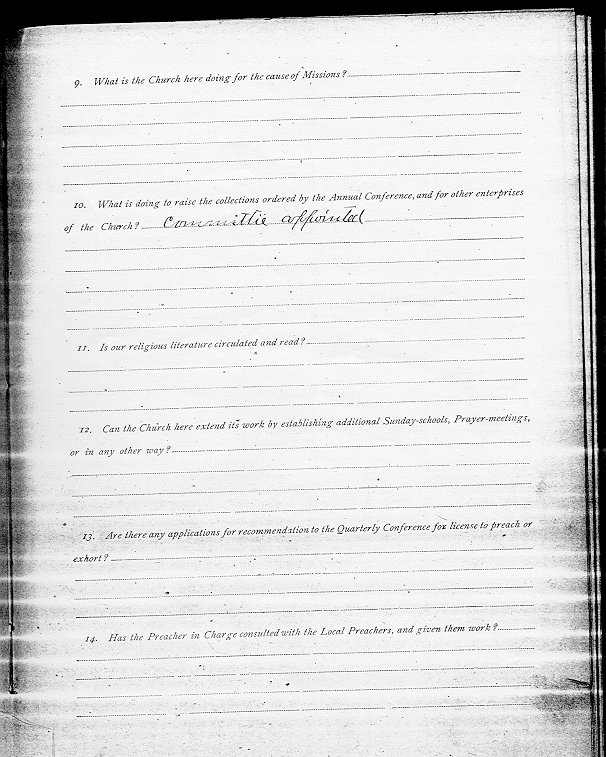 9. What is the Church here doing for the cause of Missions?
10. What is doing to raise the collections ordered by the Annual Conference, and for other enterprises
of the Church? Committie appointed
11. Is our religious literature circulated and read?
12. Can the Church here extend its work by establishing additional Sunday-schools, Prayer-meetings,
or in any other way?
13. Are there any applications for recommendation to the Quarterly Conference for license to preach or
exhort?
14. Has the Preacher in Charge consulted with the Local Preachers, and given them work?